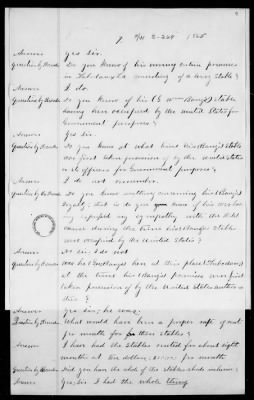 Answer Yes Sir.
Question by Do you know of his owning certain premises
in Tuscumbia consisting of a livery stable?
Answer I do.
Question by Do you know of his (G Wm Bang's) stable
having been occupied by the United States for
Government purposes?
Answer Yes Sir.
Question by Do you know at what time his (Bang's) stable
was first taken possession of by the United States
or its officers for Government purposes?
Answer I do not remember.
Question by Do you know anything concerning his (Bang's)
loyalty; that is do you know of his ever having
expressed any sympathy with the
cause during the time his (Bang's) stable
was occupied by the United States?
Answer No sir. I do not.
Question by Was he (Bangs) here at this place (Tuscumbia)
at the time his (Bang's) premises was first
taken possession of by the United States
Answer Yes Sir; he was.
Question by What would have been a proper rate of rent
per month for these stables?
Answer I have had the stables rented for about eight
months at ten dollars, per month
Question by Did you have the whole of the stables sheds inclusive?
Answer Yes, Sir I had the whole thing